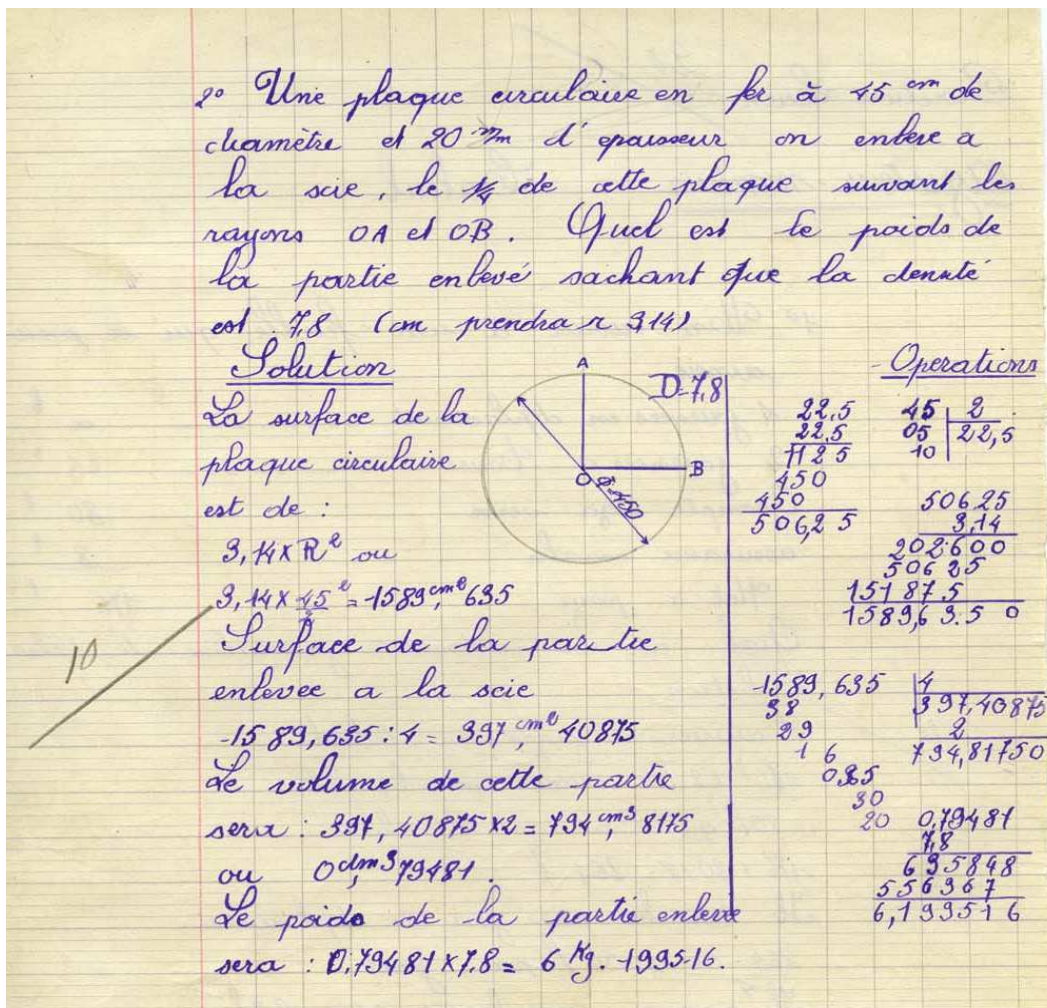 2° Une plaque circulaire en fer à 45 cm de
diamètre et 20 m/m d'epaisseur on enleve a
la scie, le 1/4 de cette plaque suivant les
rayons OA et OB. Quel est le poids de
la partie enlevé sachant que la densité
est 7,8 (on prendra π 3,14)
Solution
La surface de la
plaque circulaire
est de :
3,14 x R² ou
3,14 x 45²/2 = 1589,cm² 635
Surface de la partie
enlevee a la scie
1589,635 : 4 = 397,cm² 40875
Le volume de cette partie
sera : 397,40875 x 2 = 794,cm3 8175
ou 0,dm3 79481.
Le poids de la partie enlevé
sera : 0,79481 x 7,8 = 6 Kg. 199516.
10
A
D=7,8
O
B
450
Operations
22,5
22,5
1125
450
450
506,25
45 | 2
05 | 22,5
10
50625
3,14
202600
50625
151875
1589,6350
1589,635 | 4
38 397,40875
29 2
16 794,81750
035
30
20
0,79481
7,8
635848
556367
6,199516